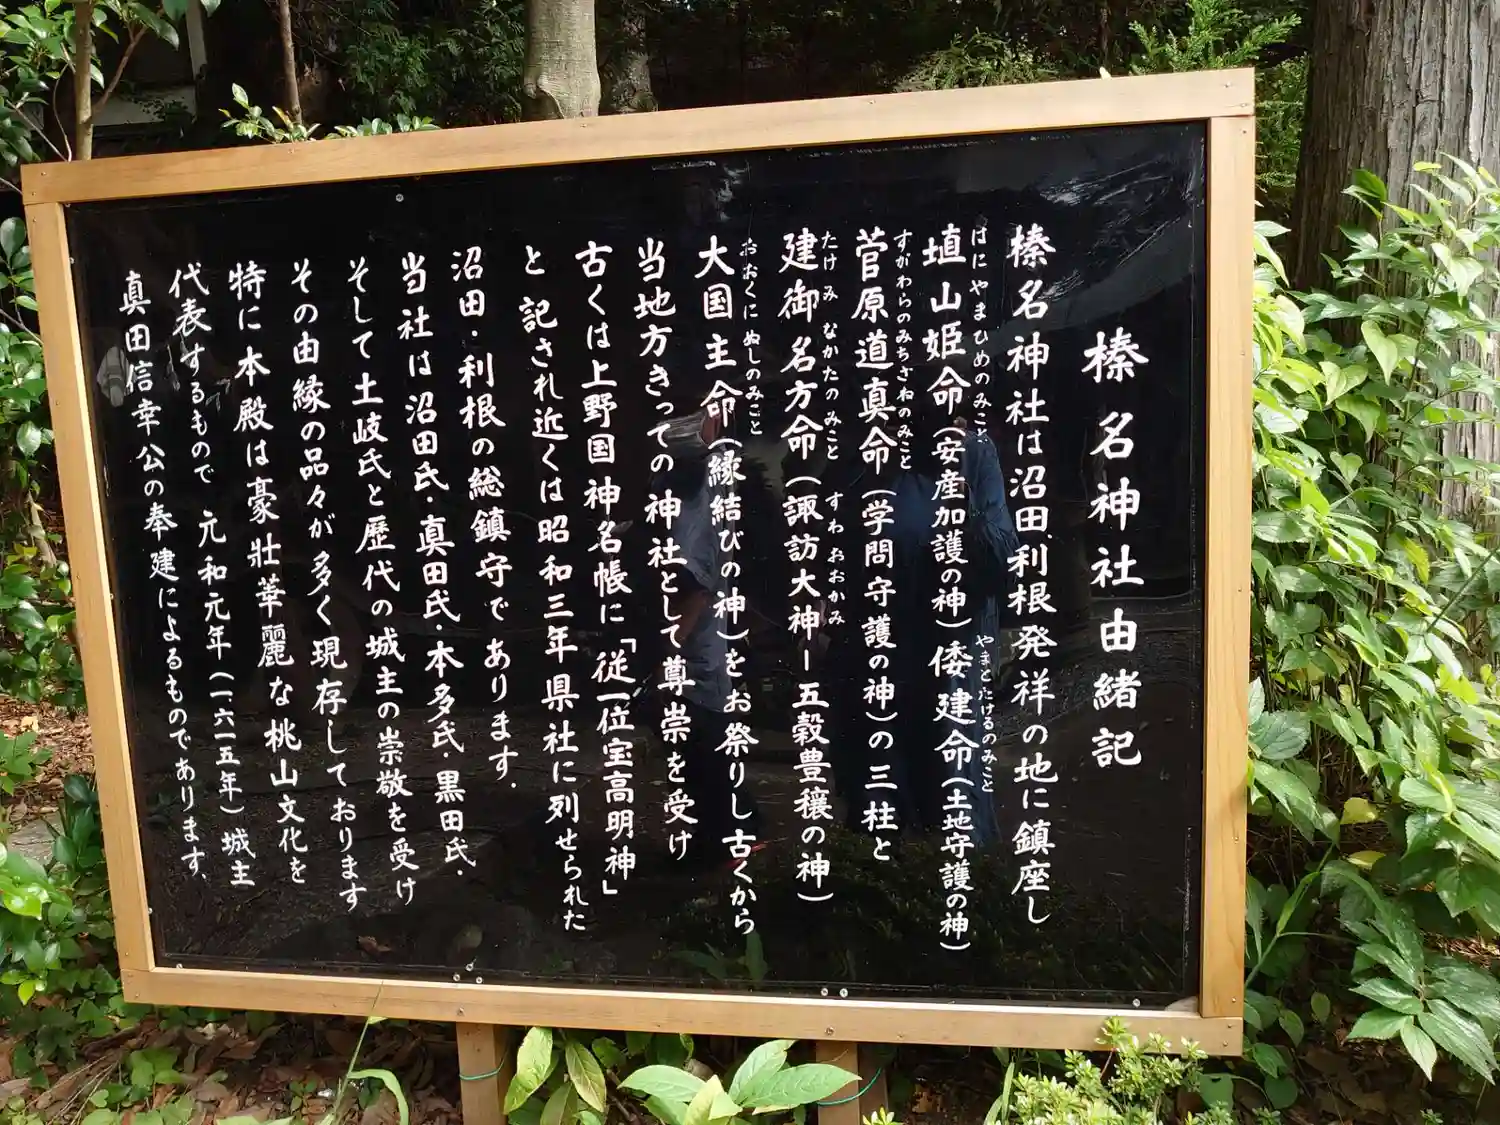 榛名神社由緒記
榛名神社は沼田、利根発祥の地に鎮座し
埴山姫命(安産加護の神)倭建命(土地守護の神)
はにやまひめのみこと やまとたけるのみこと
菅原道真命(学問守護の神)の三柱と
すがわらのみちざねのみこと
建御名方命(諏訪大神ー五穀豊穣の神)
たけみなかたのみこと すわおおかみ
大国主命(縁結びの神)をお祭りし古くから
おおくにぬしのみこと
当地方きっての神社として尊崇を受け
古くは上野国神名帳に「従一位宝高明神」
と記され近くは昭和三年県社に列せられた
沼田・利根の総鎮守であります.
当社は沼田氏・真田氏・本多氏・黒田氏・
そして土岐氏と歴代の城主の崇敬を受け
その由縁の品々が多く現存しております
特に本殿は豪壮華麗な桃山文化を
代表するもので元和元年(一六一五年)城主
真田信幸公の奉建によるものであります、